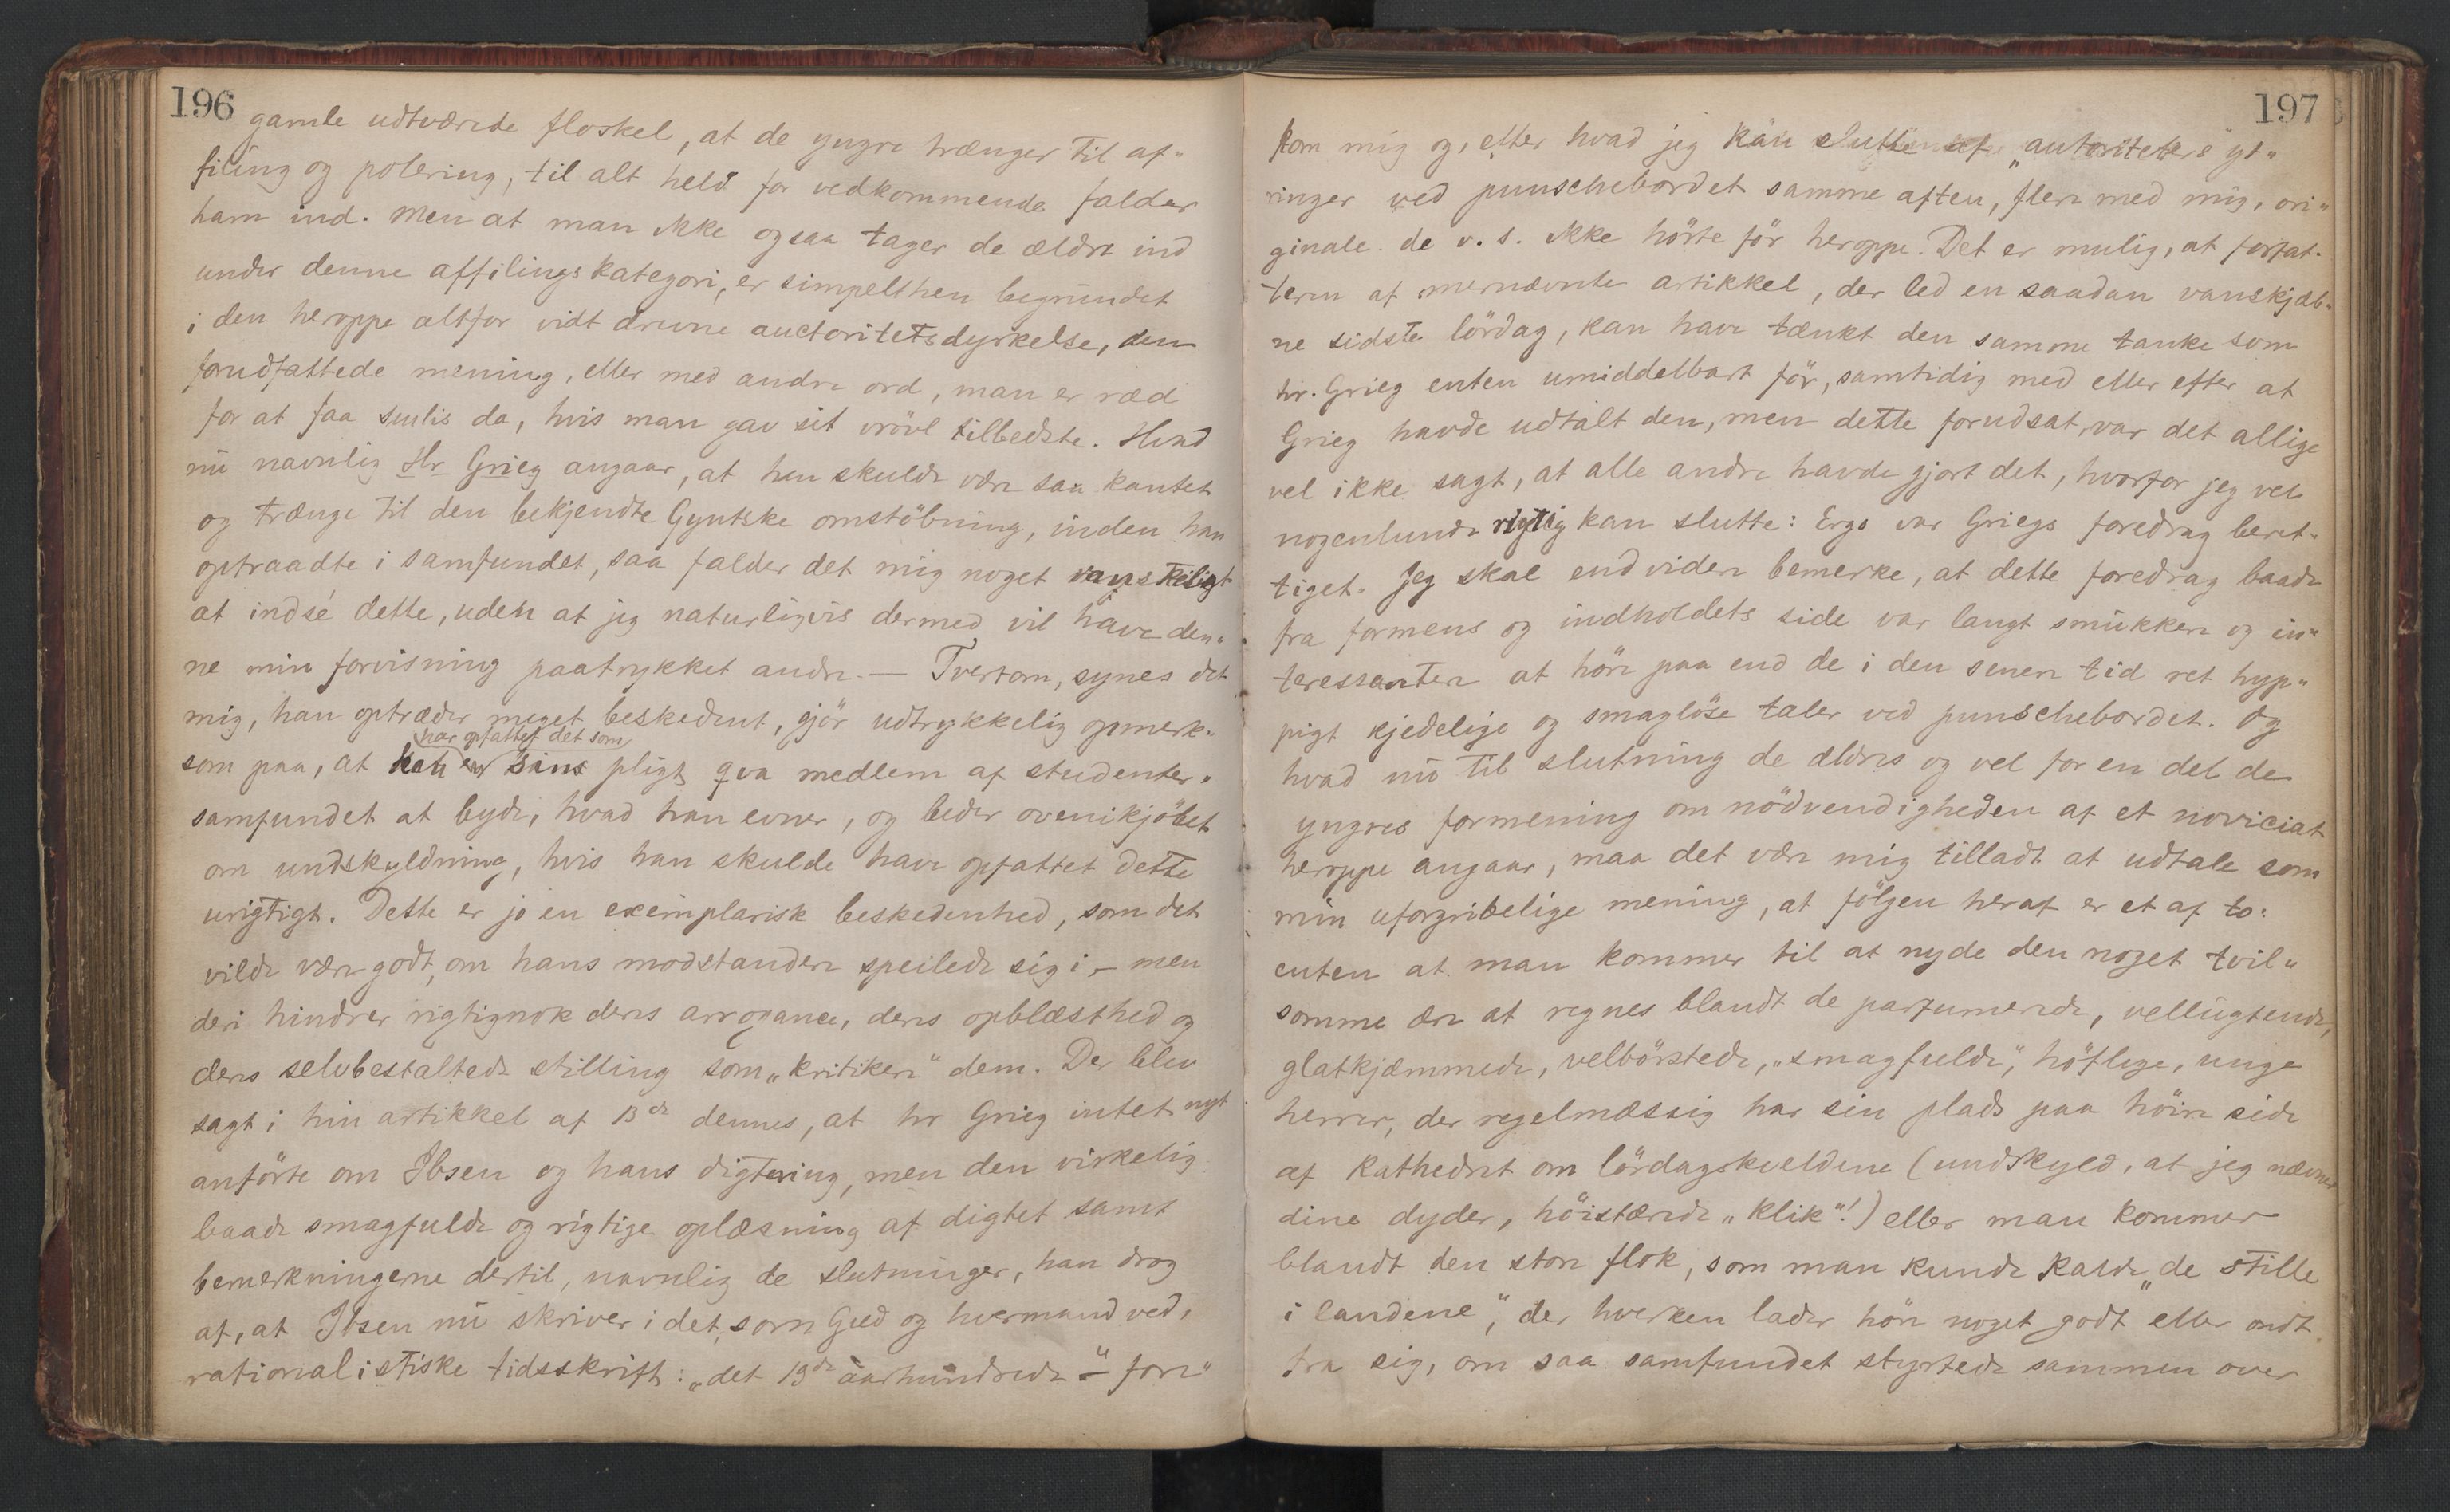 196
gamle udtværede floskel, at de yngre trænger til af-
filing og polering, til alt held for vedkommende falder
ham ind. Men at man ikke ogsaa tager de ældre ind
under denne affilingskategori, er simpelthen begrundet
i den heroppe altfor vidt drevne auctoritetsdyrkelse, den
forudfattede mening, eller med andre ord, man er ræd
for at faa smlis da, hvis man gav sit vrövl tilbedste. Hvad
nu navnlig Hr Grieg angaar, at han skulde være saa kantet
og trænge til den bekjendte Gyntske omstöbning, inden han
optraadte i samfundet, saa falder det mig noget vanskeligt
at indsé dette, uden at jeg naturligvis dermed vil have den-
ne min forvisning paatrykket andre. — Tvertom, synes det
mig, han optræder meget beskedent, gjör udtrykkelig opmerk-
har opfattet det som
som paa, at han sin pligt qva medlem af studenter-
samfundet at byde, hvad han evner, og beder ovenikjöbet
om undskyldning, hvis han skulde have opfattet dette
urigtigt. Dette er jo en exemplarisk beskedenhed, som det
vilde være godt, om hans modstandere speilede sig i, – men
deri hindrer rigtignok deres arrogance, deres opblæsthed og
deres selvbestaltede stilling som „kritikere" dem. Der blev
sagt i hin artikkel af 13de dennes, at hr Grieg intet nyt
anförte om Ibsen og hans digtning, men den virkelig
baade smagfulde og rigtige oplæsning af digtet samt
bemerkningerne dertil, navnlig de slutninger, han drog
af, at Ibsen nu skriver i det, som Gud og hvermand ved,
rationalistiske tidsskrift: „det 19de aarhundrede" – fore-
197
kom mig og, efter hvad jeg kan slutte af „autoriteters" yt-
ringer ved punschebordet samme aften, flere med mig, ori-
ginale. de v. s. ikke hörte för heroppe. Det er mulig, at forfat-
teren af mernævnte artikkel, der led en saadan vanskjæb-
ne sidste lördag, kan have tænkt den samme tanke som
hr. Grieg enten umiddelbart för, samtidig med eller efter at
Grieg havde udtalt den, men dette forudsat, var det allige
vel ikke sagt, at alle andre havde gjort det, hvorfor jeg vel
nogenlunde rigtig kan slutte: Ergo var Griegs foredrag beret-
tiget. Jeg skal end videre bemerke, at dette foredrag baade
fra formens og indholdets side var langt smukkere og in-
teressantere at höre paa end de i den senere tid ret hyp-
pigt kjedelige og smaglöse taler ved punschebordet. Og
hvad nu til slutning de ældres og vel for en del de
yngres formening om nödvendigheden af et noviciat
heroppe angaar, maa det være mig tilladt at udtale som
min uforgribelige mening, at fölgen heraf er et af to:
enten at man kommer til at nyde den noget tvil-
somme ære at regnes blandt de parfumerede, vellugtende,
glatkjæmmede, velbörstede, „smagfulde", höflige, unge
herrer, der regelmæssig har sin plads paa höire side
af kathedret om lördagskveldene (undskyld, at jeg nævner
dine dyder, höistærede „klik"!) eller man kommer
blandt den store flok, som man kunde kalde „de stille
i landene", der hverken lader höre noget godt eller ondt
fra sig, om saa samfundet styrtede sammen over